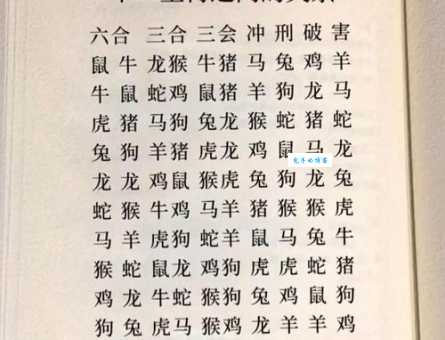 六合 三合 三会 冲 刑 破 害
鼠 牛 龙猴 牛猪 马 兔 鸡 羊
牛 鼠 蛇鸡 鼠猪 羊 狗 龙 马
虎 猪 马狗 兔龙 猴 蛇 猪 蛇
兔 狗 羊猪 虎龙 鸡 鼠 马 龙
龙 龙 鸡鼠 猴虎 兔 狗 龙 兔
蛇 猴 牛鸡 马羊 猪 猴 猴 虎
马 羊 虎狗 蛇羊 鼠 马 兔 牛
猴 蛇 鼠龙 鸡狗 虎 虎 蛇 猪
鸡 龙 牛蛇 猴狗 兔 鸡 鼠 狗
狗 兔 虎马 猴鸡 龙 羊 羊 鸡